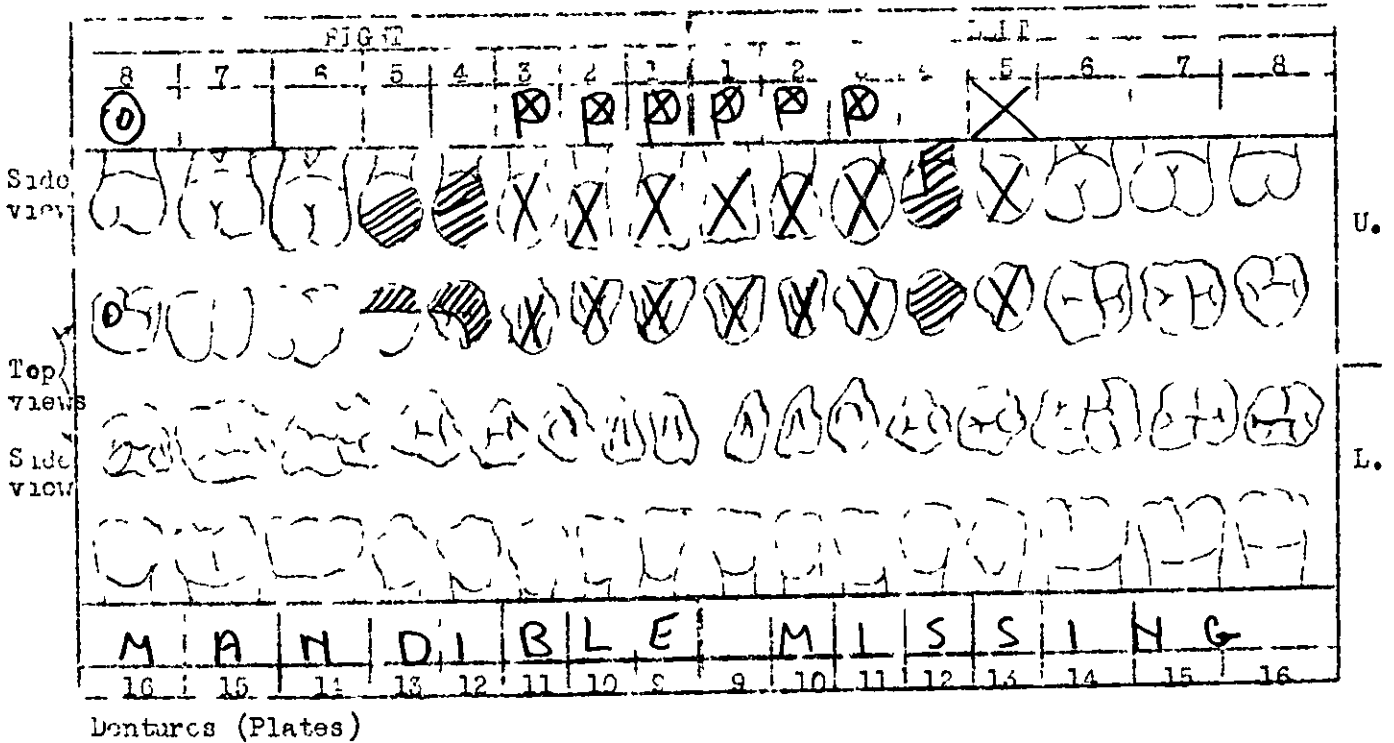 RIGHT LEFT
8 7 6 5 4 3 2 1 1 2 5 6 7 8
O P P P P P P X
Side view
U.
Top views
L.
Side view
MANDIBLE MISSING
16 15 14 13 12 11 10 9 9 10 11 12 13 14 15 16
Dentures (Plates)